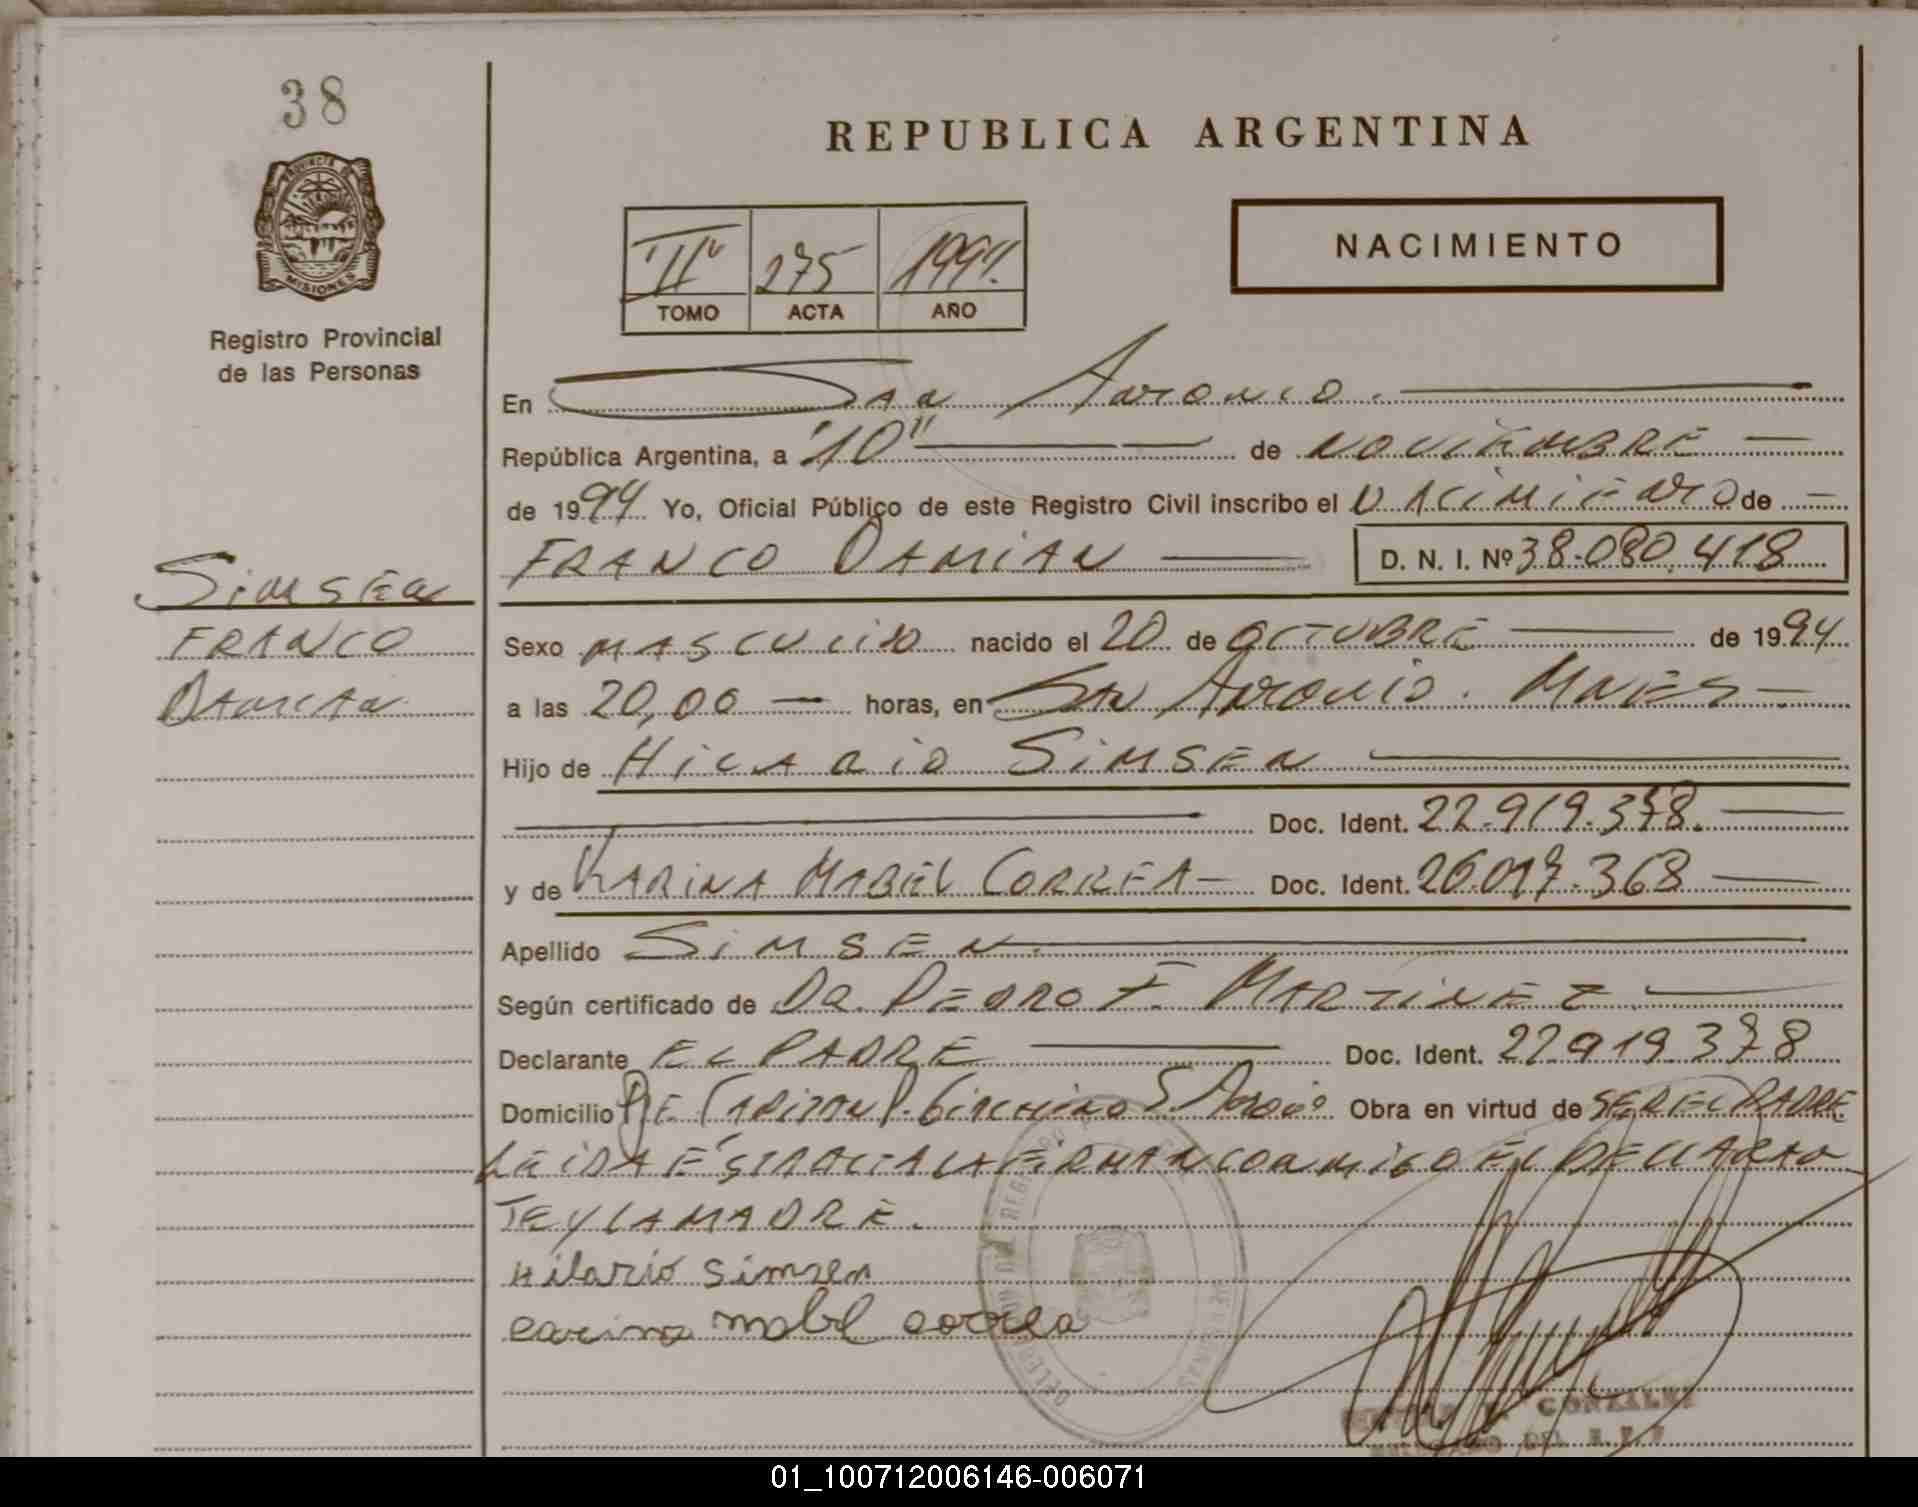 38
REPUBLICA ARGENTINA
PROVINCIA DE
MISIONES
Registro Provincial
de las Personas
II 275 1994
TOMO ACTA AÑO
NACIMIENTO
En San Antonio.
República Argentina, a "10" de NOVIEMBRE
de 1994 Yo, Oficial Público de este Registro Civil inscribo el NACIMIENTO de
FRANCO DAMIAN D. N. I. Nº 38.080.418
SIMSEN
FRANCO
DAMIAN
Sexo MASCULINO nacido el 20 de OCTUBRE de 1994
a las 20,00 horas, en SAN ANTONIO. MNES
Hijo de HILARIO SIMSEN
Doc. Ident. 22.919.378.
y de KARINA MABEL CORREA Doc. Ident. 26.017.368
Apellido SIMSEN.
Según certificado de DR. PEDRO F. MARTINEZ.
Declarante EL PADRE Doc. Ident. 22919378
Domicilio S. Antonio Obra en virtud de SER EL PADRE
LEIDA ESTA ACTA LA FIRMAN CONMIGO EL DECLARAN
TE Y LA MADRE.
Hilario Simsen
carina mabel correa
GONZALEZ
01_100712006146-006071